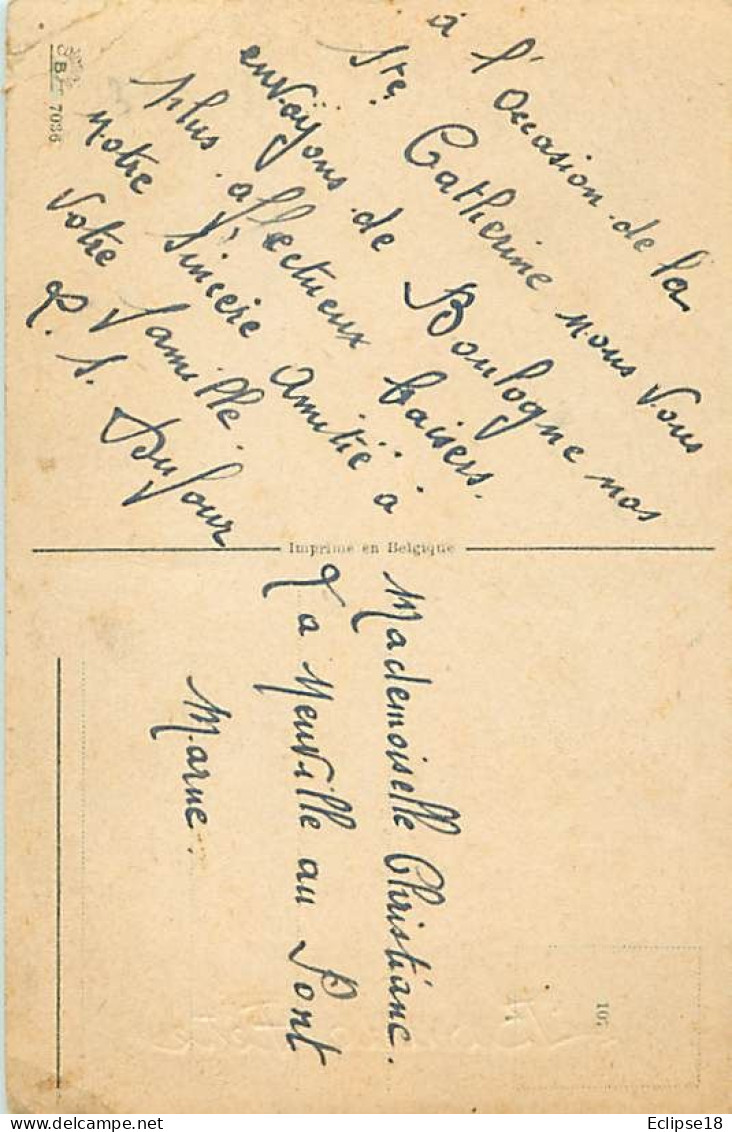 à l'Occasion de la
Ste Catherine nous vous
envoÿons de Boulogne nos
plus affectueux baisers.
Notre Sincère Amitié à
votre famille.
S. Dufour
B 7036
Imprimé en Belgique
Mademoiselle Christiane.
a Neuville au Pont
Marne.
107
Eclipse18